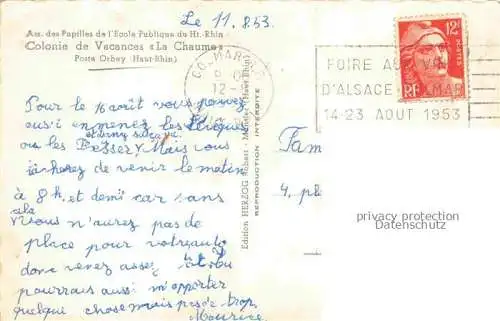 Le 11.8.53.
Ass. des Papilles de l'Ecole Publique du Ht.-Rhin
Colonie de Vacances «La Chaume»
Poste Orbey (Haut-Rhin)
Pour le 16 août vous pouvez
aussi emmenez les
ou les Besser. Mais vous
de venir le matin
à 8h. et demi car sans
cela
vous n'aurez pas de
place pour votre auto
donc venez assez tôt. Tu
pourrais aussi m'apporter
quelque chose mais pas de trop.
Maurice
Edition HERZOG Robert - (Haut Rhin)
REPRODUCTION INTERDITE
COLMAR
12-8
FOIRE AUX VINS
D'ALSACE COLMAR
14-23 AOUT 1953
12F
POSTES
RF
Fam
4, pl
privacy protection
Datenschutz